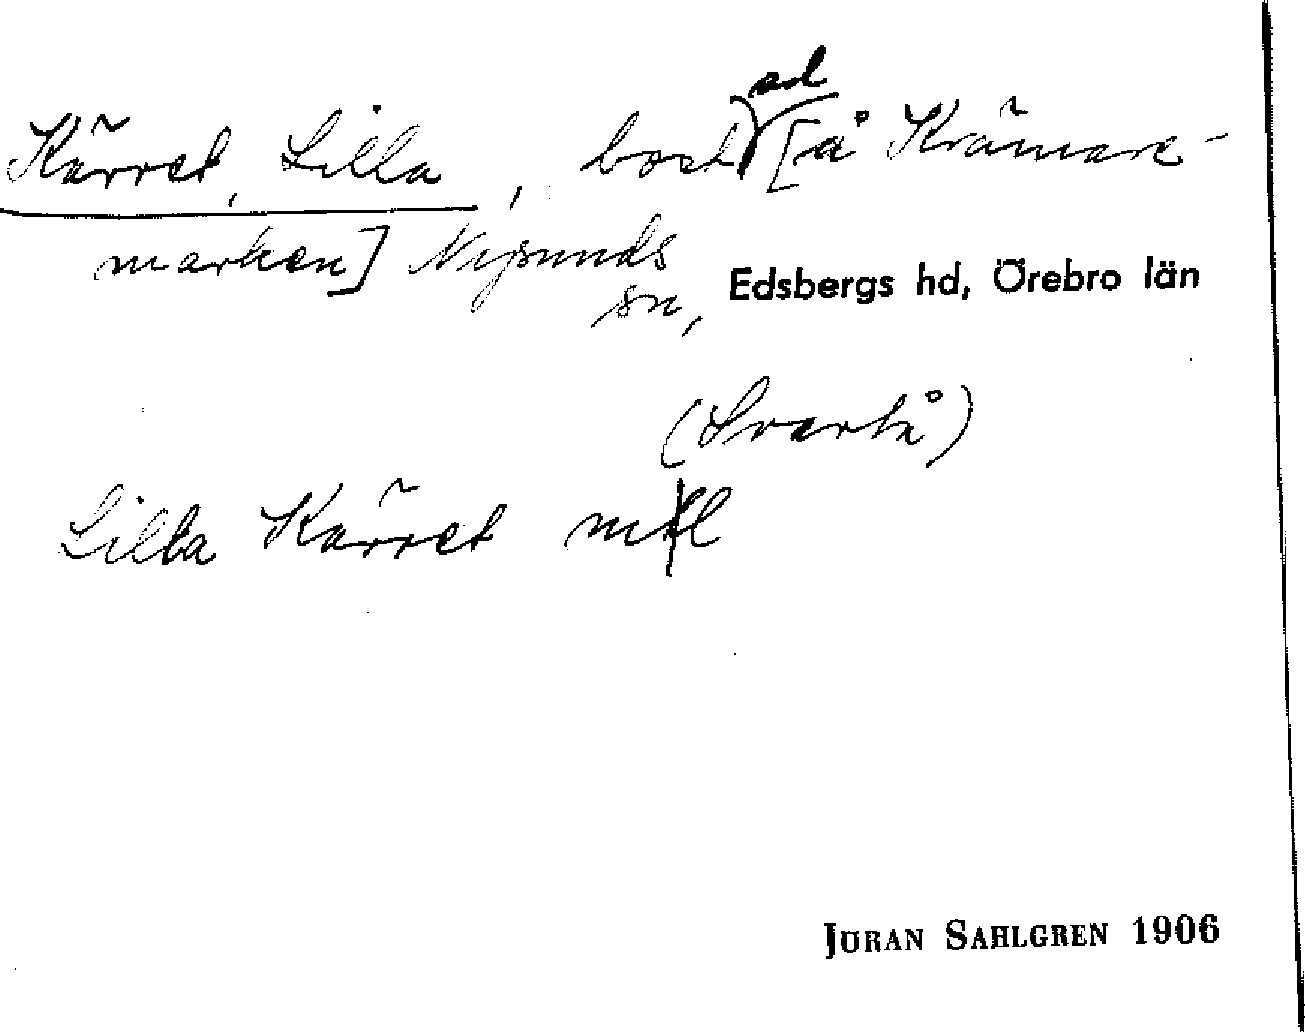 Kärret, Lilla, bost ad [å Krämare-
marken] Nysunds
sn, Edsbergs hd, Örebro län
(Svartå)
Lilla Kärret
JÖRAN SAHLGREN 1906